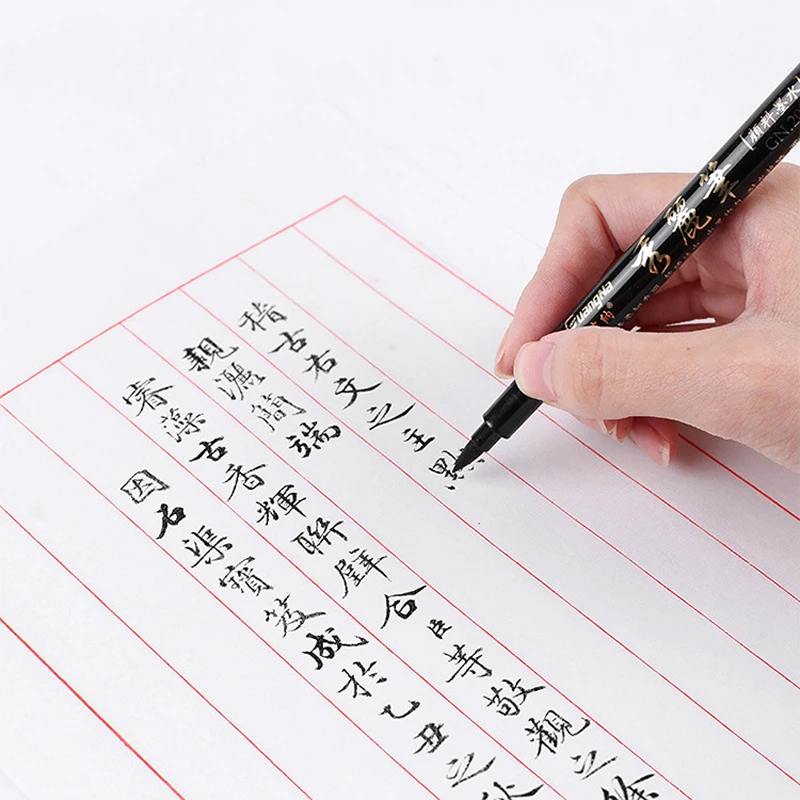 稽古右文之主
親灑簡端
睿藻古香輝聯璧合臣等敬觀之餘
因石渠寶笈成於乙丑之秋
Guangna
秀麗筆
颜料墨水